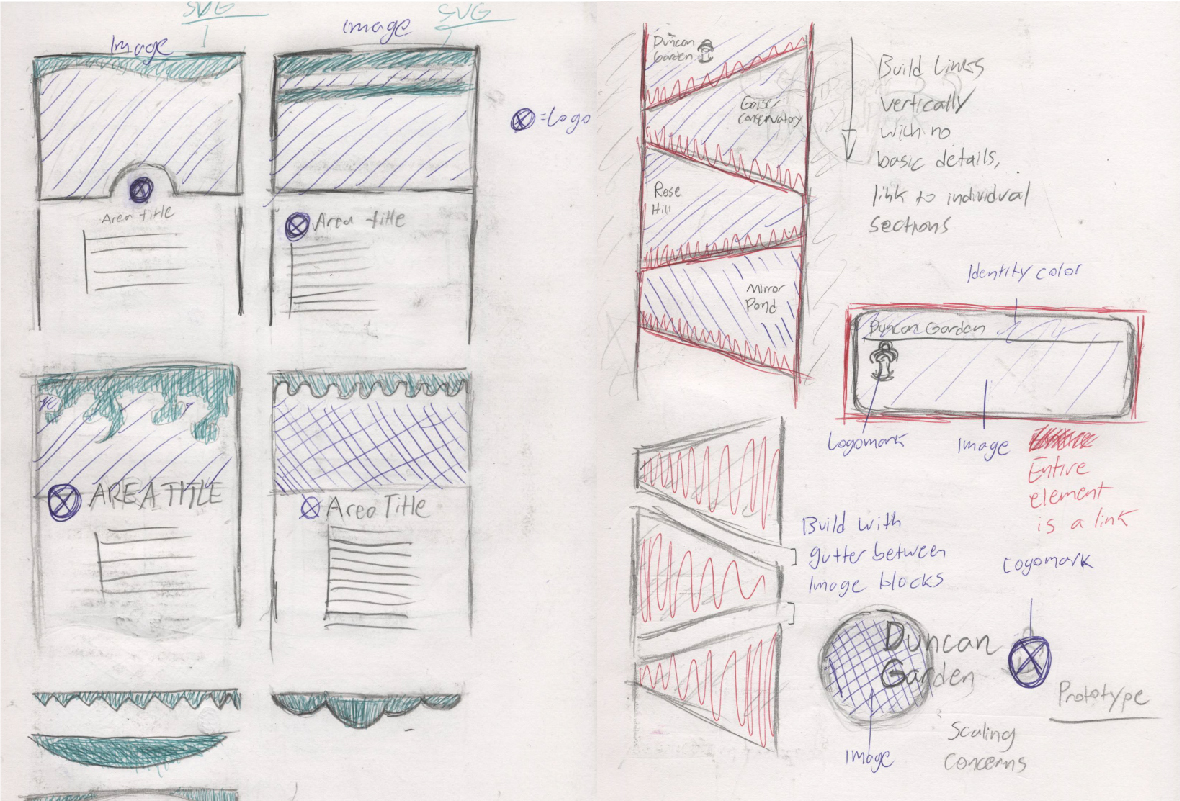 SVG
SVG
Image
Image
=Logo
Area title
Area title
AREA TITLE
Area Title
Duncan
Garden
conservatory
Rose
Hill
Mirror
Pond
Build Links
vertically
with no
basic details,
link to individual
sections
Identity color
Duncan Garden
Logomark
Image
Entire
element
is a link
Build with
gutter between
Image blocks
Logomark
Duncan
Garden
Image
Prototype
Scaling
Concerns